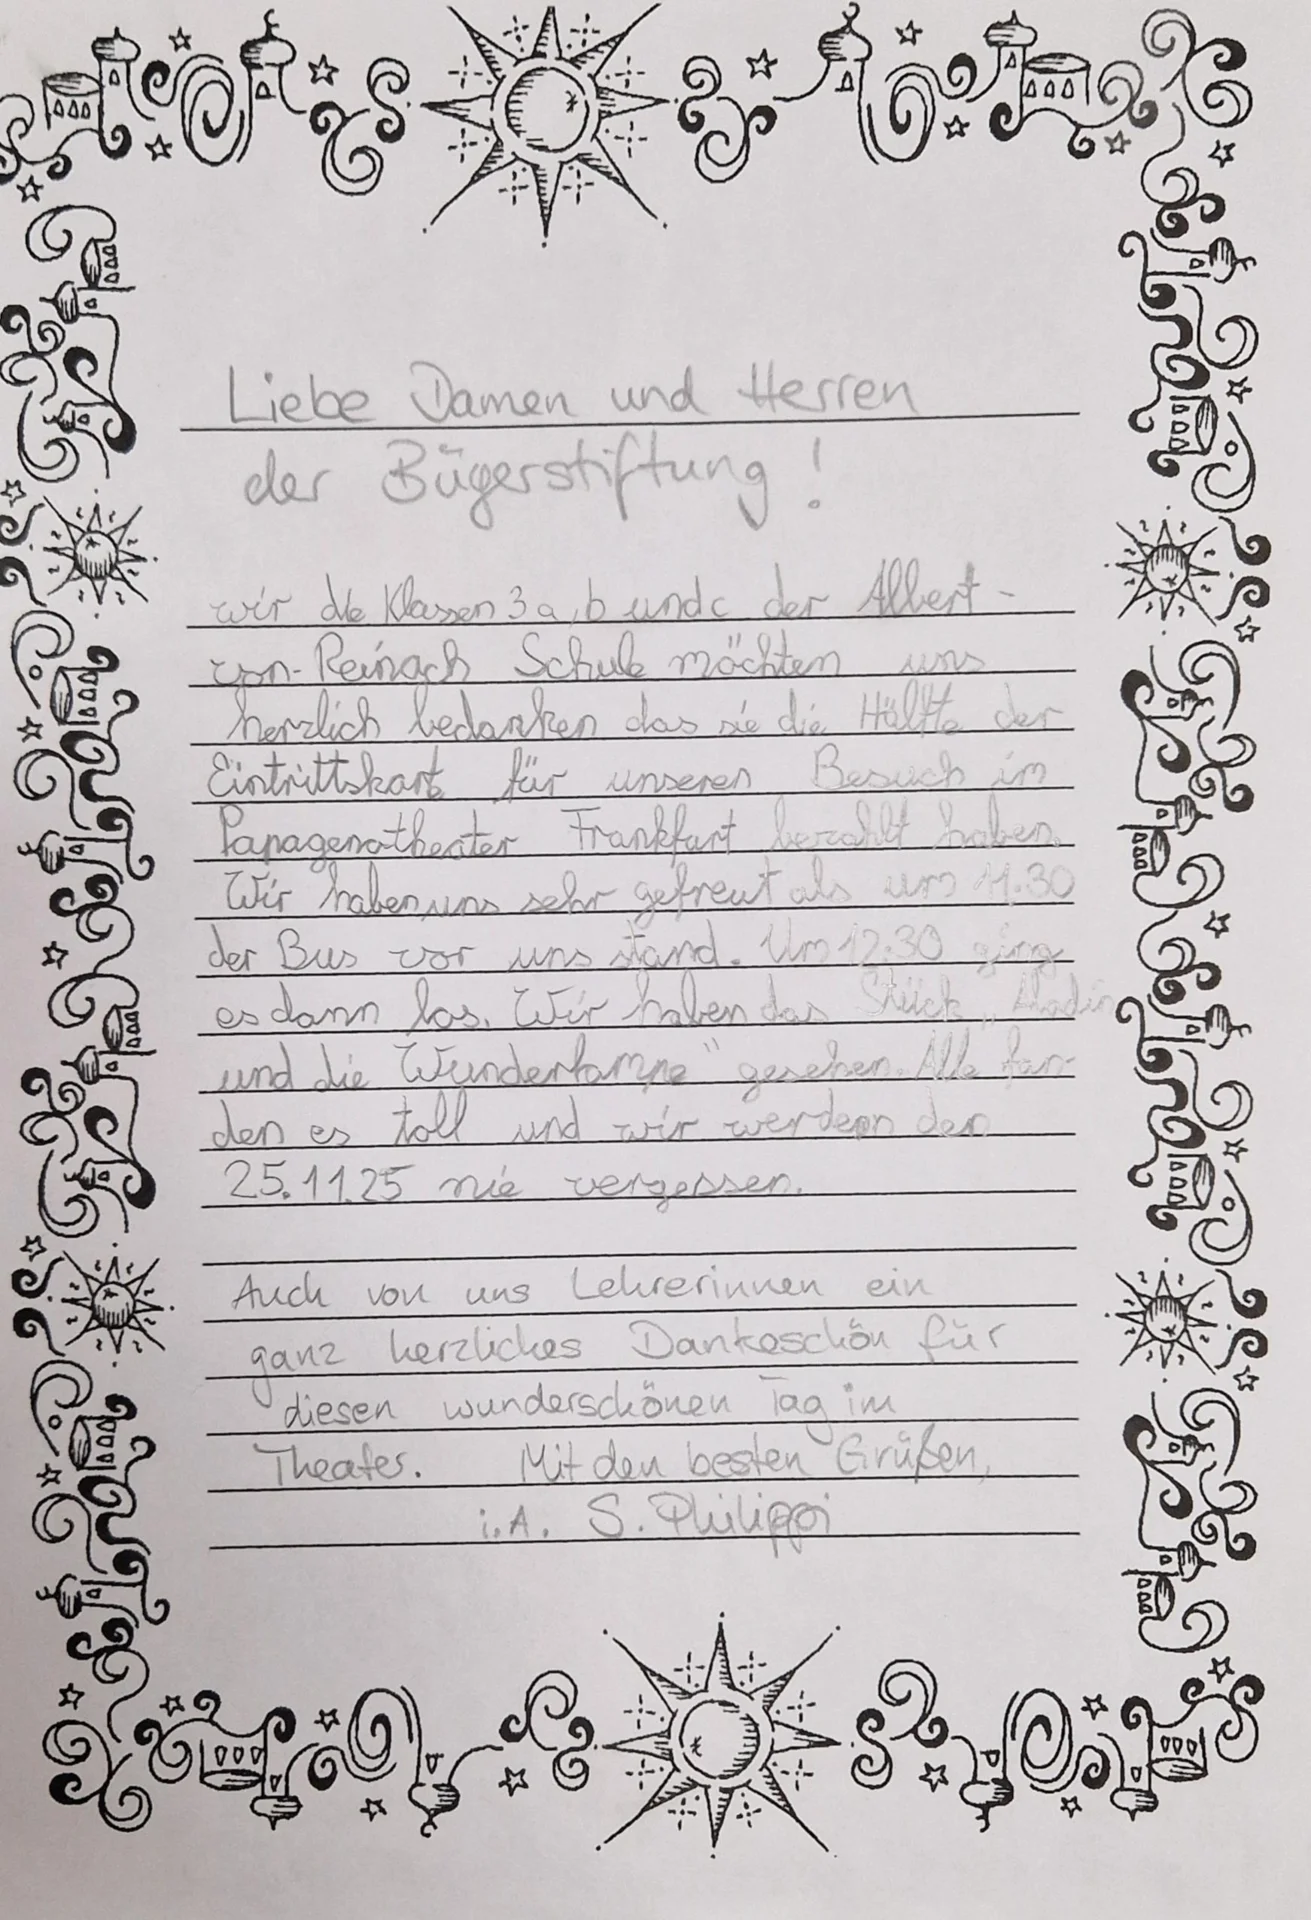 Liebe Damen und Herren
der Bügerstiftung!
wir die Klassen 3a, b und c der Albert-
von-Reinach Schule möchten uns
herzlich bedanken das sie die Hälfte der
Eintrittskarte für unseren Besuch im
Papagenotheater Frankfurt bezahlt haben.
Wir haben uns sehr gefreut als um 11.30
der Bus vor uns stand. Um 12.30 ging
es dann los. Wir haben das Stück „Aladin
und die Wunderlampe" gesehen. Alle fan-
den es toll und wir werden den
25.11.25 nie vergessen.
Auch von uns Lehrerinnen ein
ganz herzliches Dankeschön für
diesen wunderschönen Tag im
Theater. Mit den besten Grüßen,
i.A. S. Philippi